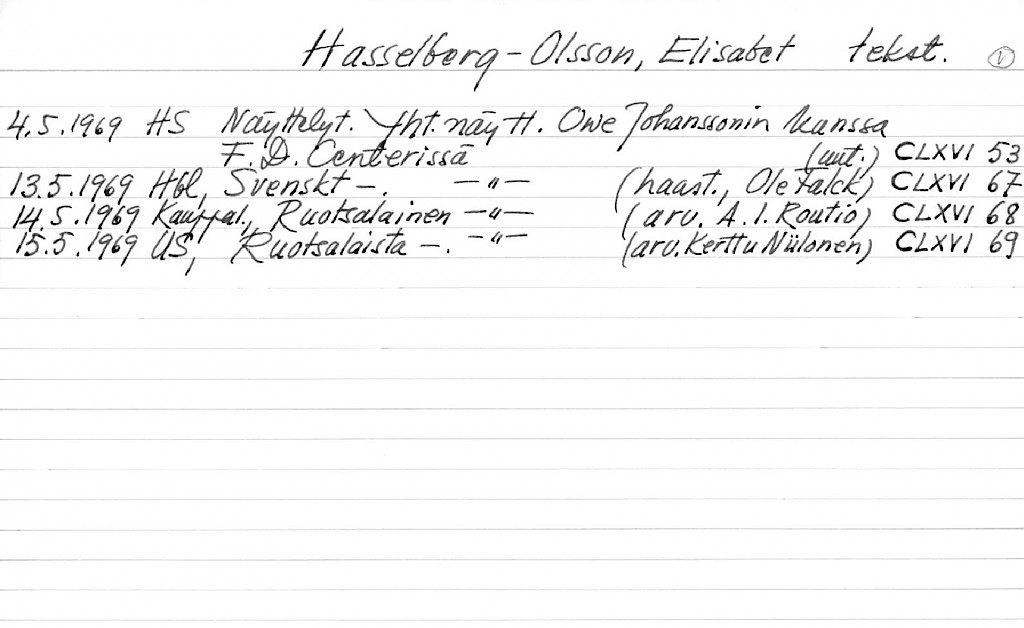 Hasselberg-Olsson, Elisabet tekst. V
4.5.1969 HS Näyttelyt. Yht.näytt. Owe Johanssonin kanssa
F.D. Centerissä (uut.) CLXVI 53
13.5.1969 Hbl, Svenskt –. –"– (haast., Ole Falck) CLXVI 67
14.5.1969 Kauppal., Ruotsalainen –"– (arv. A.I. Routio) CLXVI 68
15.5.1969 US, Ruotsalaista –. –"– (arv. Kerttu Niilonen) CLXVI 69